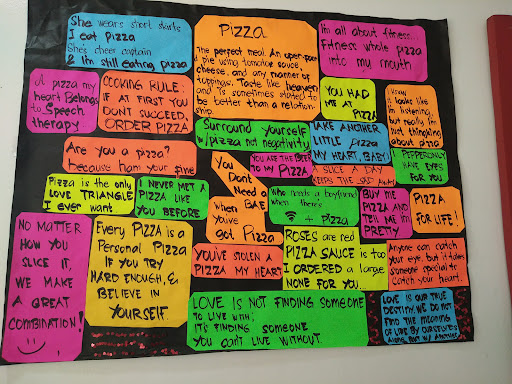 She wears short skirts
I eat PIZZA
She's cheer captain
& I'm still eating pizza
PIZZA
The perfect meal. An open-pored
pie using tomatoe sauce,
cheese, and any manner of
toppings. Taste like heaven
and is sometimes stated to
be better than a relation-
ship.
I'm all about fitness...
Fitness whole pizza
into my mouth
A pizza my
heart Belongs
to Speech
therapy
COOKING RULE:
IF AT FIRST YOU
DON'T SUCCEED,
ORDER PIZZA
YOU HAD
ME AT
PIZZA
I know
I looke like
I'm listening,
but really I'm
Just thinking
about pizza
Surround yourself
w/pizza not negativity
TAKE ANOTHER
LITTLE pizza
MY HEART, BABY!
Are you a pizza?
because
YOU ARE THE
TO MY PIZZA
A SLICE A DAY
KEEPS THE SAD AWAY
PEPPERONLY
HAVE EYES
FOR YOU
PIZZA is the only
LOVE TRIANGLE
I ever want
I NEVER MET A
PIZZA LIKE
YOU BEFORE
You
Dont
Need a
BAE
when
You've
got Pizza
who needs a boyfriend
when there's
+ pizza
BUY ME
PIZZA AND
TELL ME I'm
PRETTY
PIZZA
FOR LIFE!
NO MATTER
HOW YOU
SLICE IT,
WE MAKE
A GREAT
COMBINATION!
Every PIZZA is a
Personal PIZZA
IF YOU TRY
HARD ENOUGH, &
BELIEVE IN
YOURSELF
YOU'VE STOLEN A
PIZZA MY HEART
ROSES are red
PIZZA SAUCE is too
I ORDERED a large
NONE FOR YOU...
Anyone can catch
your eye, but it takes
someone special to
catch your heart.
LOVE IS NOT FINDING SOMEONE
TO LIVE WITH;
IT'S FINDING SOMEONE
YOU CAN'T LIVE WITHOUT.
LOVE IS OUR TRUE
DESTINY. WE DO NOT
FIND THE MEANING
OF LIFE BY OURSELVES
ALONE,